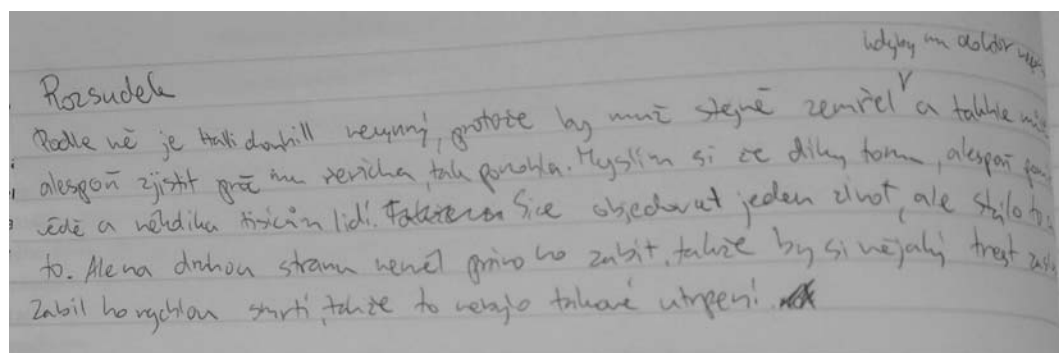 kdyby mu doktor
Rozsudek
Podle mě je nevinný, protože by muž stejně zemřel a takhle
alespoň zjistit proč mu, tak pomohla. Myslím si že díky tomu, alespoň
vědě a tisícům lidí. Sice obědovat jeden život, ale stálo to
to. Ale na druhou stranu neměl právo ho zabít, takže by si nějaký trest
Zabil ho rychlou smrtí, takže to nebylo takové utrpení.